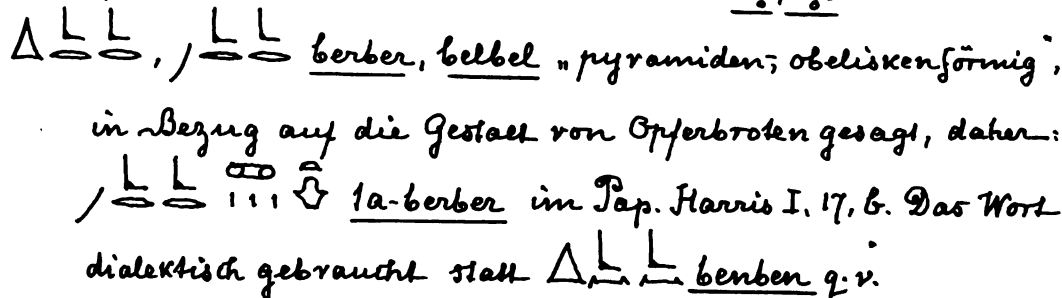 berber, belbel „pyramiden-, obeliskenförmig“,
in Bezug auf die Gestalt von Opferbroten gesagt, daher:
ta-berber im Pap. Harris I, 17, b. Das Wort
dialektisch gebraucht statt benben q. v.